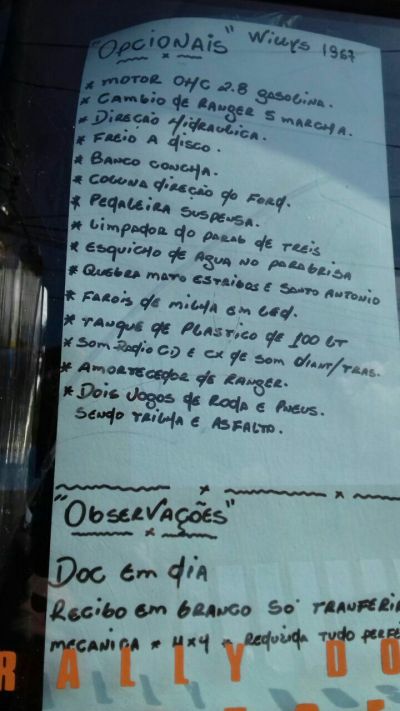 "OPCIONAIS" Willys 1967
* MOTOR OHC 2.8 gasolina.
* CAMBIO de RANGER 5 MARCHA.
* DIREÇÃO HidRAULICA.
* FREIO A disco.
* BANCO CONCHA.
* COLUNA diREÇÃO do FORd.
* PEdALEIRA SUSPENSA.
* LIMPADOR do PARAB dE TREIS
* ESQUICHO dE AGUA NO PARABRISA
* QUEBRA MATO ESTRIBOS E SANTO ANTONIO
* FAROIS dE MILHA EM LEd.
* TANQUE dE PLASTICO dE 100 LT
* SOM RAdio CD E CX dE SOM DIANT/TRAS.
* AMORTECEDOR dE RANGER.
* DOIS JOGOS dE RODA E PNEUS.
SENDO TRILHA E ASFALTO.
"OBSERVAÇÕES"
DOC EM diA
RECIBO EM BRANCO SÓ TRANFERIR
MECANICA * 4x4 * REDUZIDA TUDO PERFE
RALLY DO